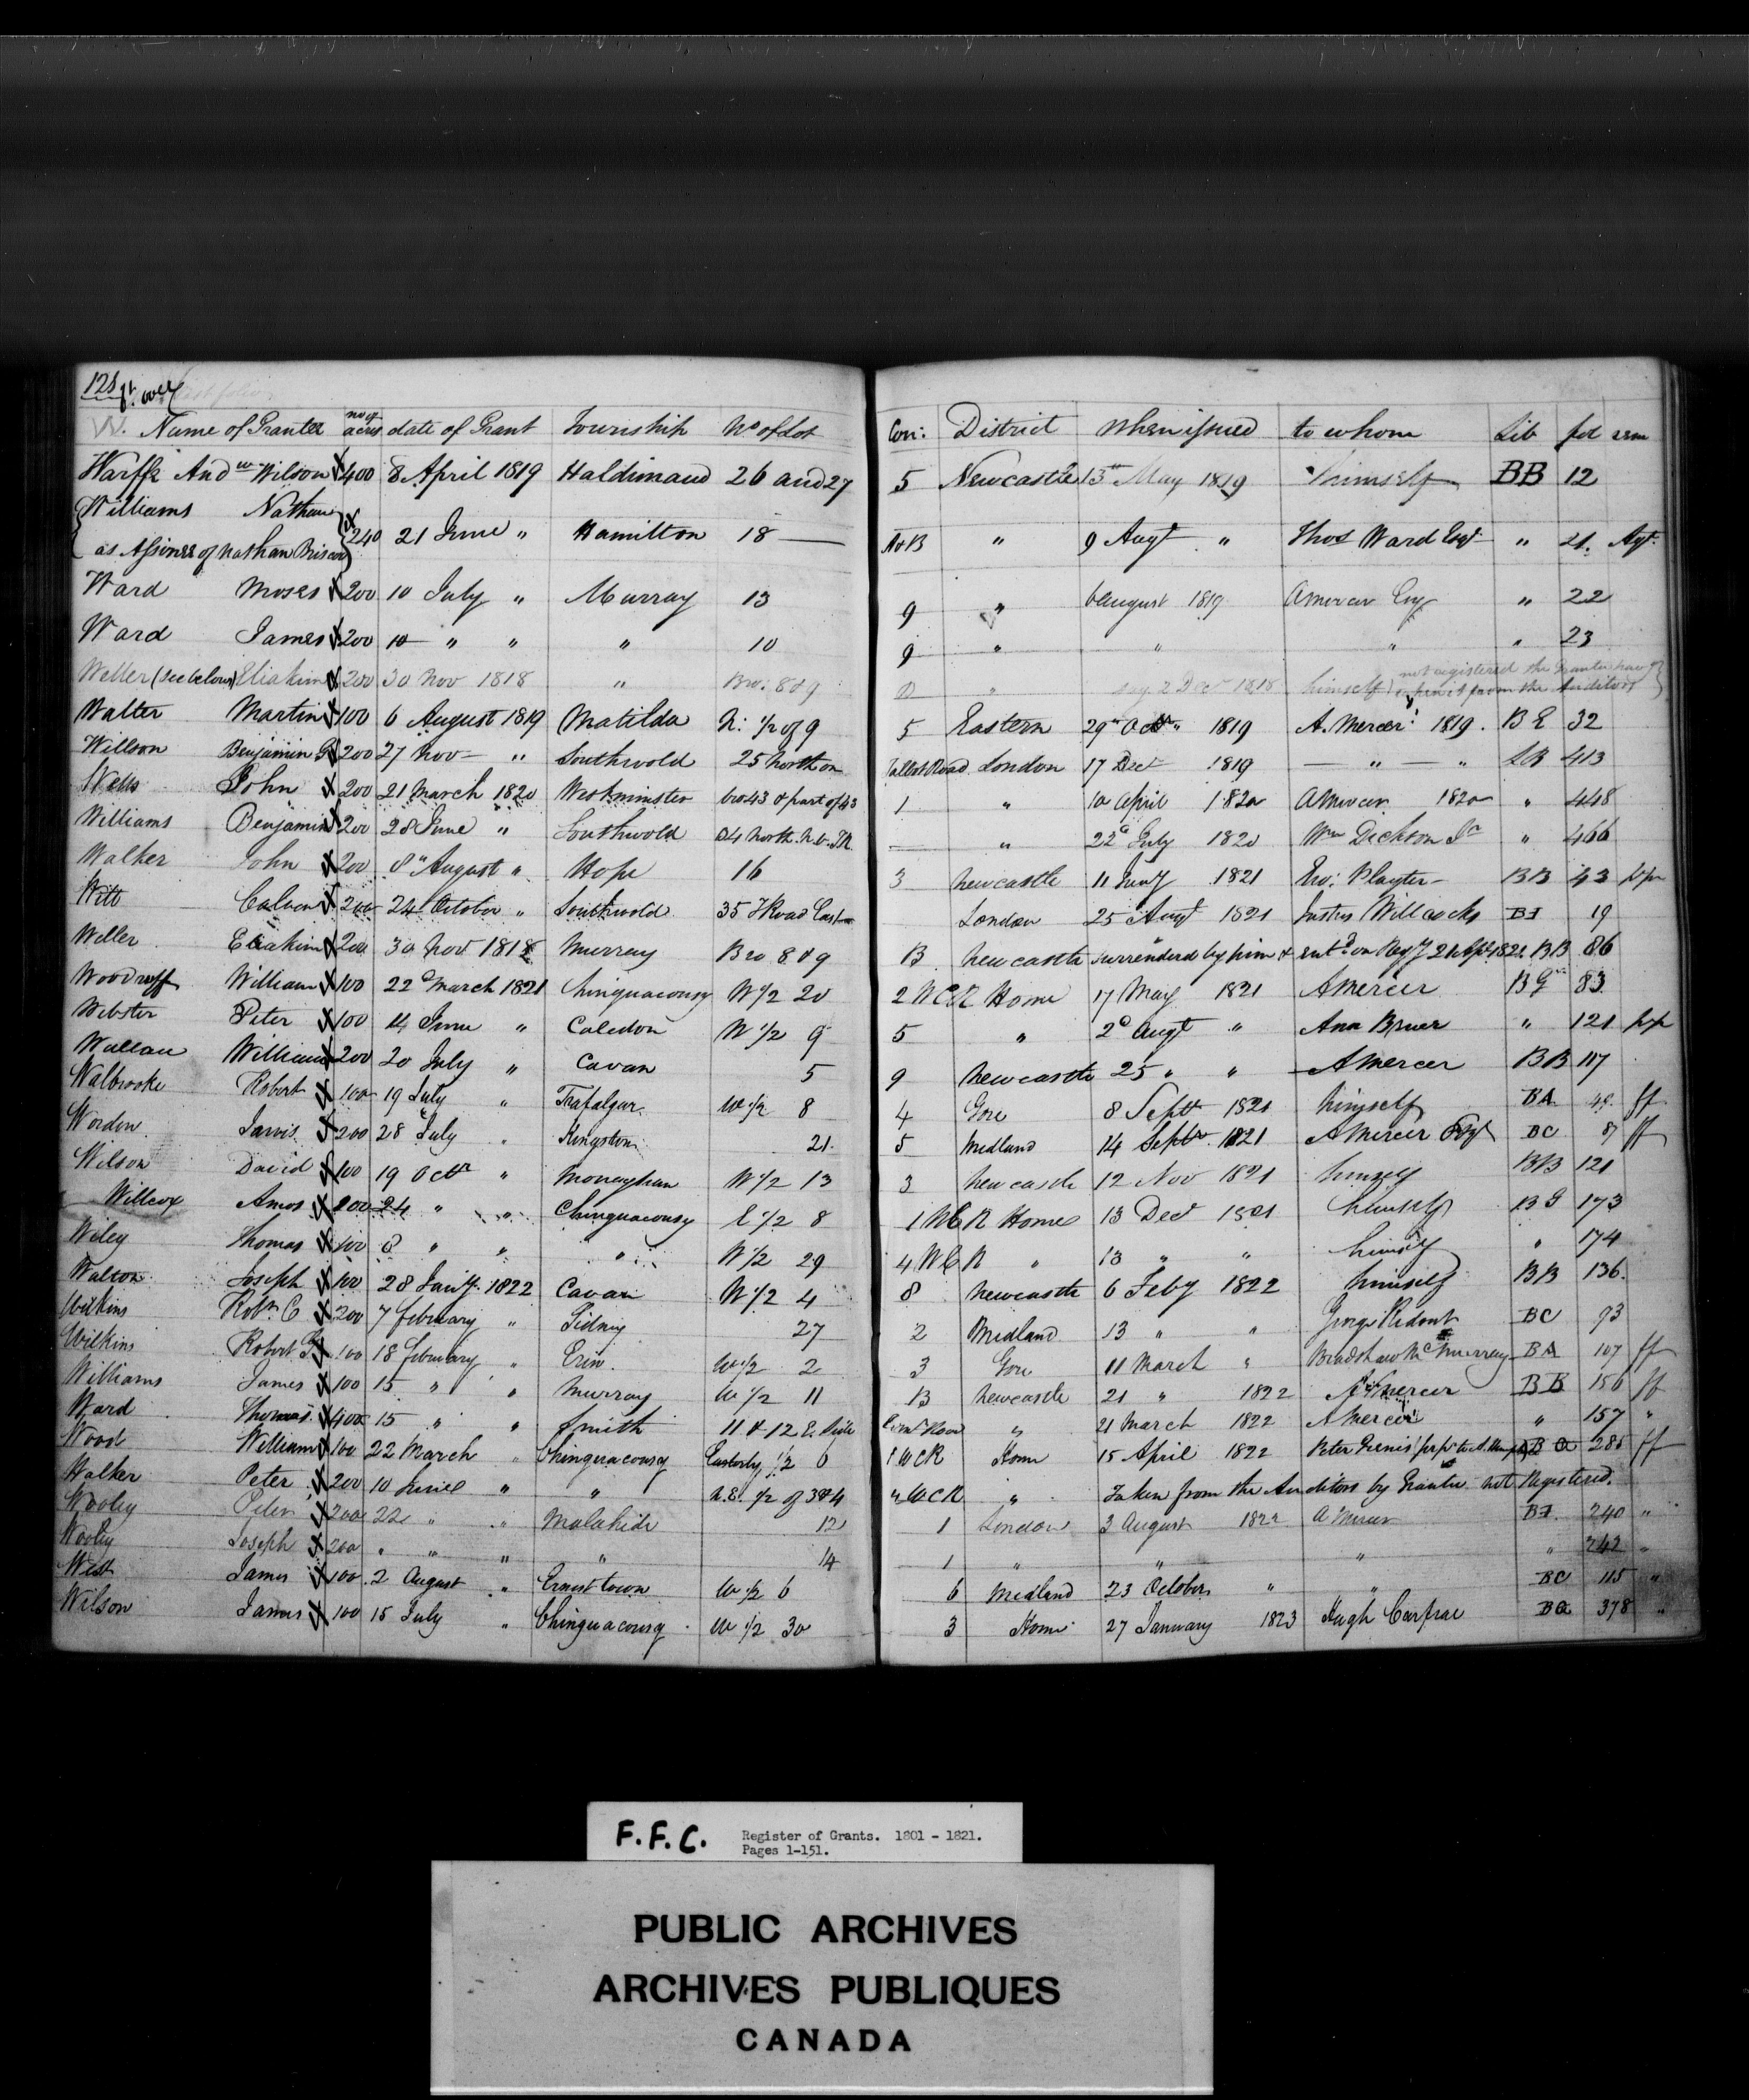 128
W. Name of Grantee no of acres date of Grant Township No of Lot Con: District When issued to whom Lib fol rem
Warffe Andw Wilson 400 8 April 1819 Haldimand 26 and 27 5 Newcastle 13th May 1819 himself BB 12
Williams Nathan
as Assignee of Nathan 240 21 June " Hamilton 18 — A&B " 9 Augt " Thos Ward Esqr " 21. Agt.
Ward Moses 200 10 July " Murray 13 9 " 6 August 1819 Amercer Esq " 22
Ward James 200 10 " " " 10 9 " " " " 23
Weller (see below) Eliakim 200 30 Nov 1818 " Bro: 8 & 9 " 2 Decr 1818 himself not registered the Grantee having it from the Auditors
Walter Martin 100 6 August 1819 Matilda N: 1/2 of 9 5 Eastern 29th Octr 1819 A. Mercer 1819. BE 32
Willson Benjamin 200 27 Nov — " Southwold 25 North on Talbot Road London 17 Decr 1819 — " — " 413
Wells John 200 21 March 1820 Westminster bro 43 & part of 43 1 " 10 April 1820 Amercer 1820 " 448
Williams Benjamin 200 28 June " Southwold North — " 22d July 1820 Wm Dickson Jr " 466
Walker John 200 8th August " Hope 16 3 Newcastle 11 Jany 1821 Playter — BB 43
Witt 200 24 October " Southwold 35 T Road East London 25 Augt 1821 Justus Willcocks 19
Weller Eliakim 200 30 Nov 1818 Murray Bro 8 & 9 B Newcastle surrendered by him & 1821. BB 86
Woodruff William 100 22d March 1821 Chinguacousy W 1/2 20 2 WCR Home 17 May 1821 Amercer BG 83
Webster Peter 100 14 June " Caledon W 1/2 9 5 " 2d Augt " Ann " 121
William 200 20 July " Cavan 5 9 Newcastle 25 " " Amercer BB 117
Walbrooke Robert 100 19 July " Trafalgar W 1/2 8 4 Gore 8 Septr 1821 himself BA ff
Worden Jarvis 200 28 July " Kingston 21. 5 Midland 14 Septr 1821 Amercer BC 87 ff
Wilson David 100 19 Octr " Monaghan W 1/2 13 3 Newcastle 12 Nov 1821 himself BB 121
Willcox Amos 200 24 " " Chinguacousy E 1/2 8 1 WCR Home 13 Decr 1821 himself BG 173
Wiley Thomas 100 8 " " " W 1/2 29 4 WCR " 13 " " himself " 174
Walton Joseph 100 28 Jany. 1822 Cavan W 1/2 4 8 Newcastle 6 Feby 1822 himself BB 136.
Wilkins Robt. C 200 7 february " Sidney 27 2 Midland 13 " " George Ridout BC 93
Wilkins Robert 100 18 february " Erin W 1/2 2 3 Gore 11 March " Bradshaw McMurray BA 107 ff
Williams James 100 15 " " Murray W 1/2 11 B Newcastle 21 " 1822 Amercer BB 156 ff
Ward Thomas 400 15 " " Smith 11 & 12 E. Side Comn Road " 21 March 1822 Amercer " 157 "
Wood William 100 22 March " Chinguacousy Easterly 1/2 6 1 WCR Home 15 April 1822 Peter 285 ff
Walker Peter 200 10 " " N.E. 1/2 of 3 & 4 " WCR " Taken from the Auditors by Grantee not Registered.
Wooley Peter 200 22 " " Malahide 12 1 London 3 August 1822 Amercer 240 "
Wooley Joseph 200 " " " " 14 1 " " " " 242 "
West James 100 2 August " Ernest town W 1/2 6 6 Midland 23 October " " BC 115 "
Wilson James 100 15 July " Chinguacousy W 1/2 30 3 Home 27 January 1823 Hugh Carfrae 378 "
F.F.C. Register of Grants. 1801 - 1821.
Pages 1-151.
PUBLIC ARCHIVES
ARCHIVES PUBLIQUES
CANADA